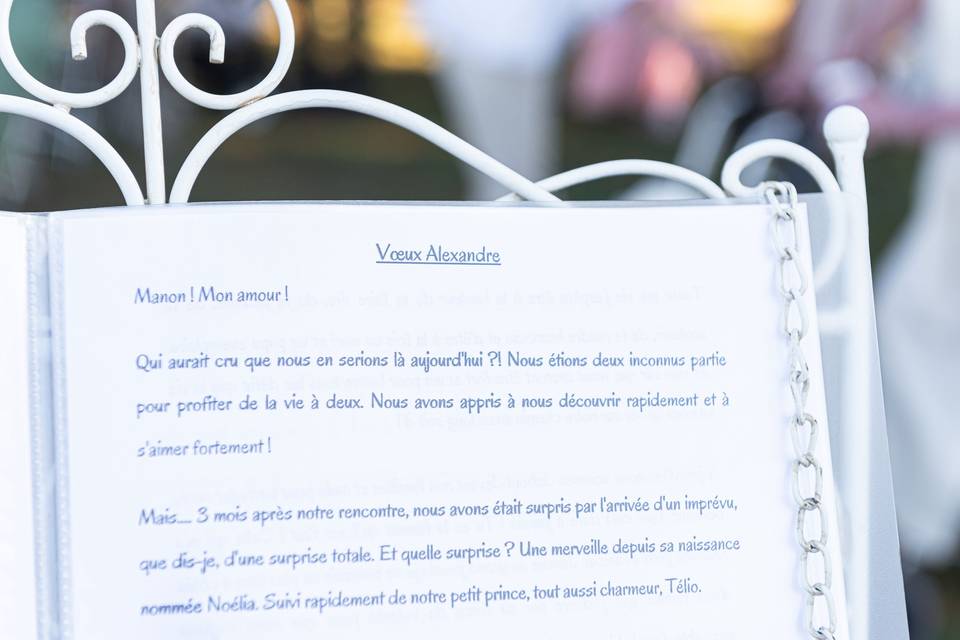 Vœux Alexandre
Manon ! Mon amour !
Qui aurait cru que nous en serions là aujourd'hui ?! Nous étions deux inconnus partie
pour profiter de la vie à deux. Nous avons appris à nous découvrir rapidement et à
s'aimer fortement !
Mais.... 3 mois après notre rencontre, nous avons était surpris par l'arrivée d'un imprévu,
que dis-je, d'une surprise totale. Et quelle surprise ? Une merveille depuis sa naissance
nommée Noélia. Suivi rapidement de notre petit prince, tout aussi charmeur, Télio.